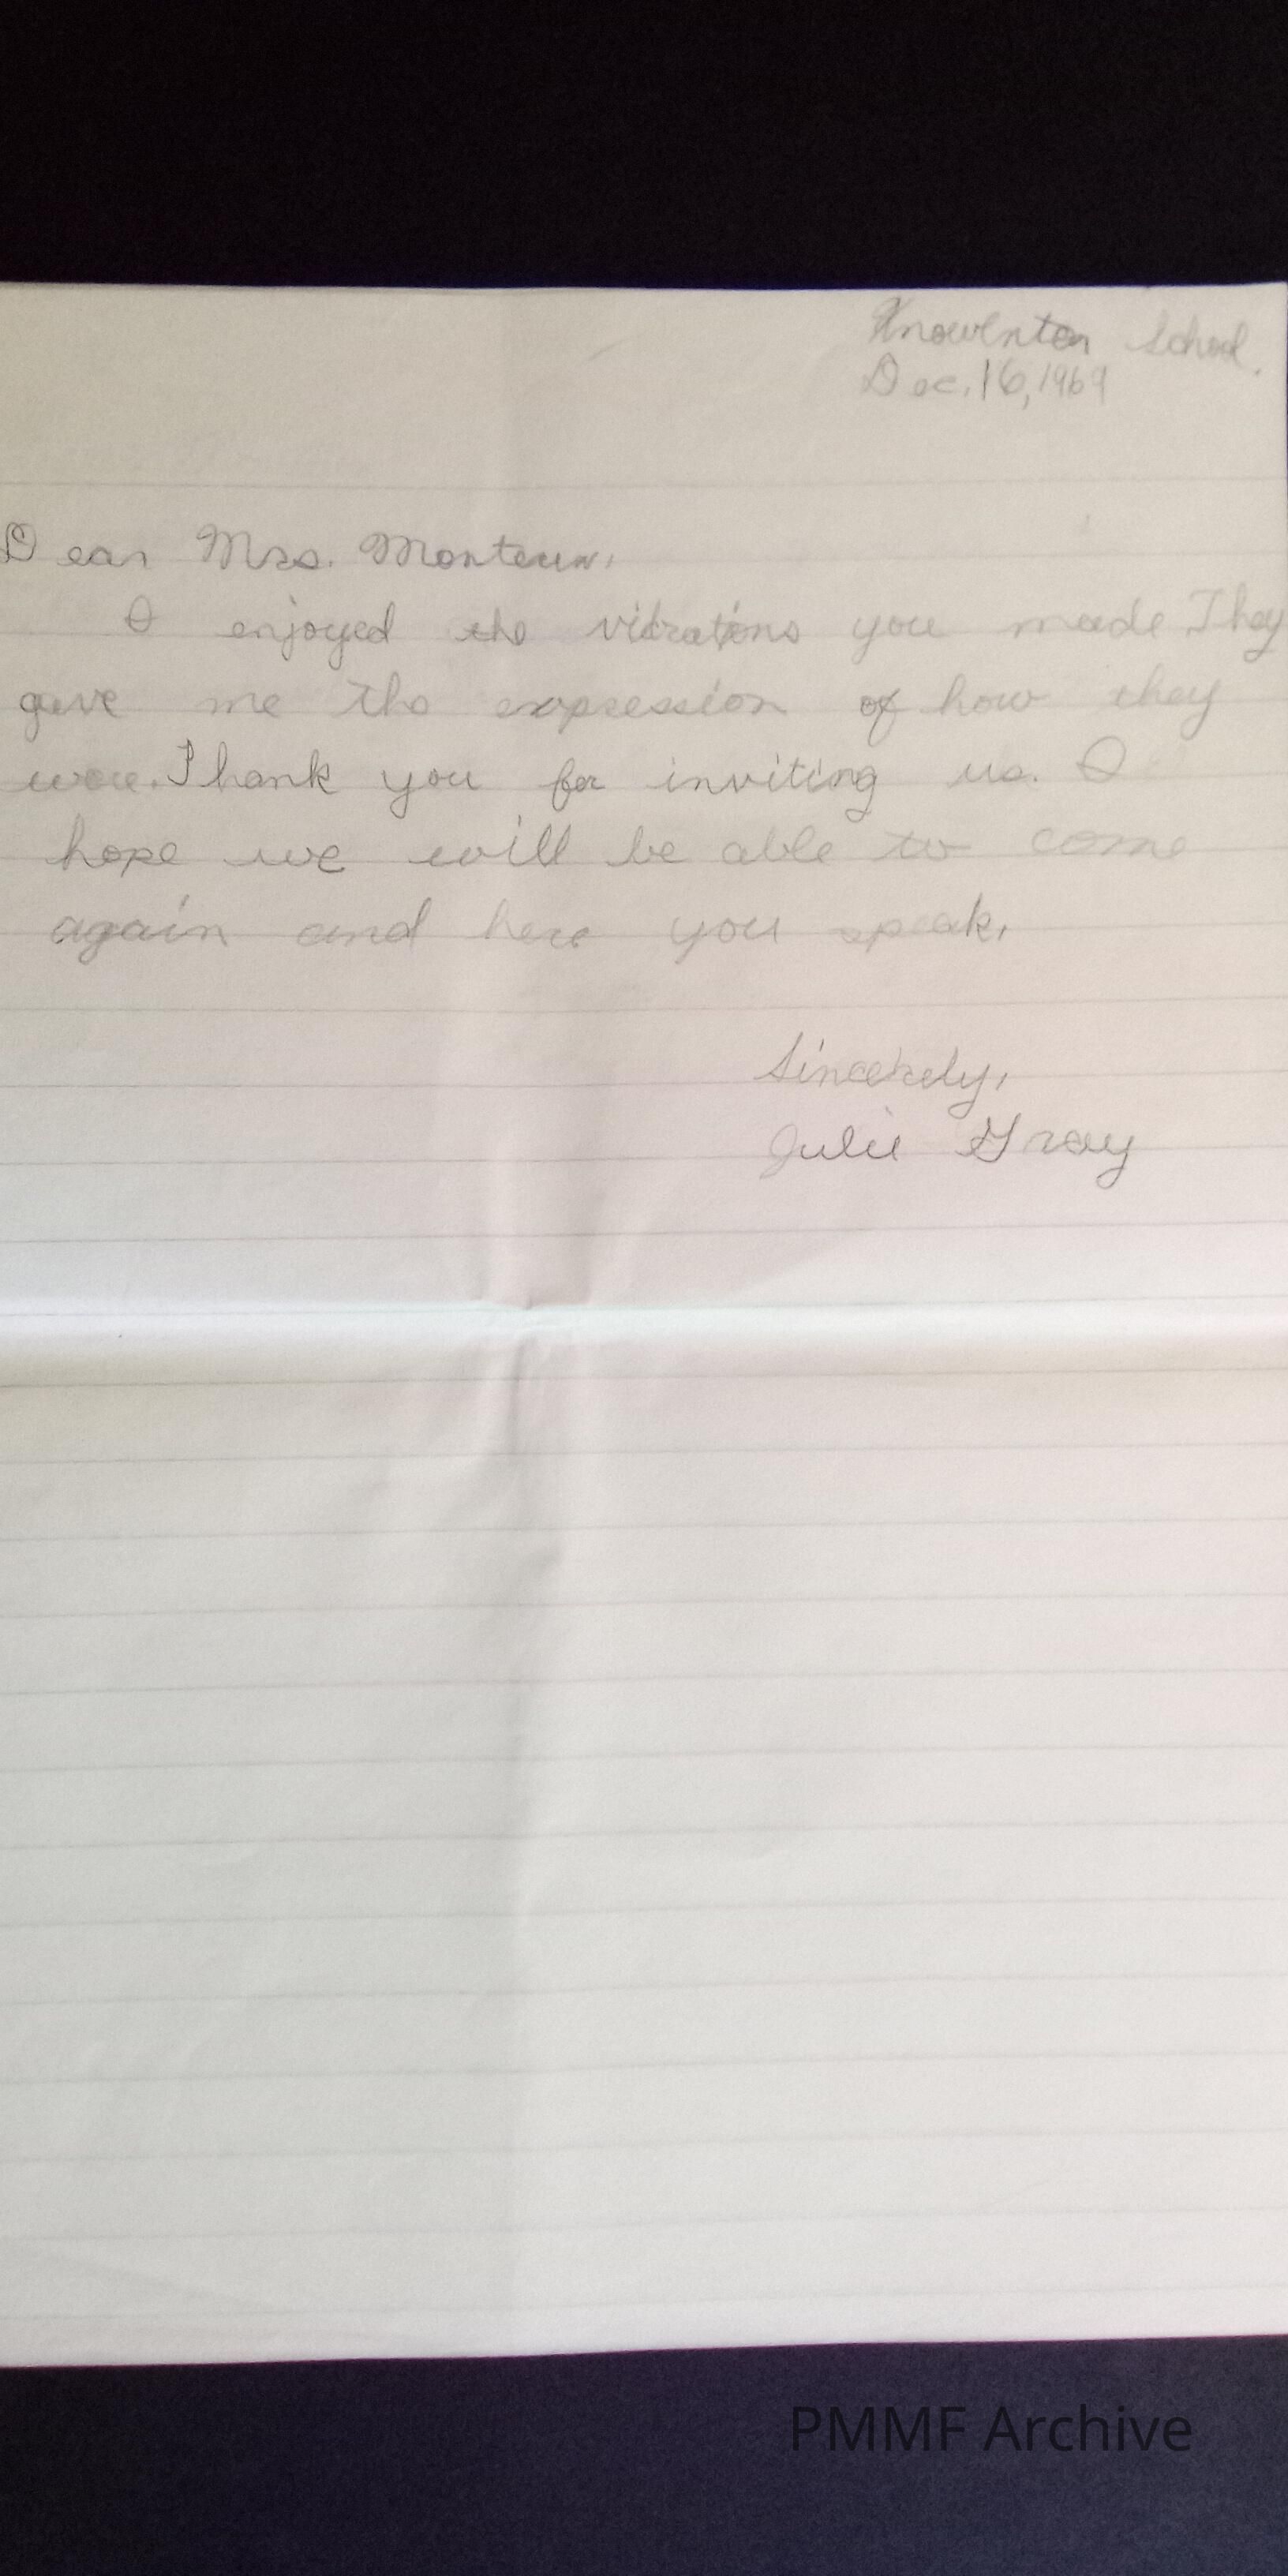 Knowlnton School.
Dec. 16, 1969
Dear Mrs. Monteux,
I enjoyed the vibrations you made They
gave me the expression of how they
were. Thank you for inviting us. I
hope we will be able to come
again and here you speak,
Sincerely,
Julie Gray
PMMF Archive